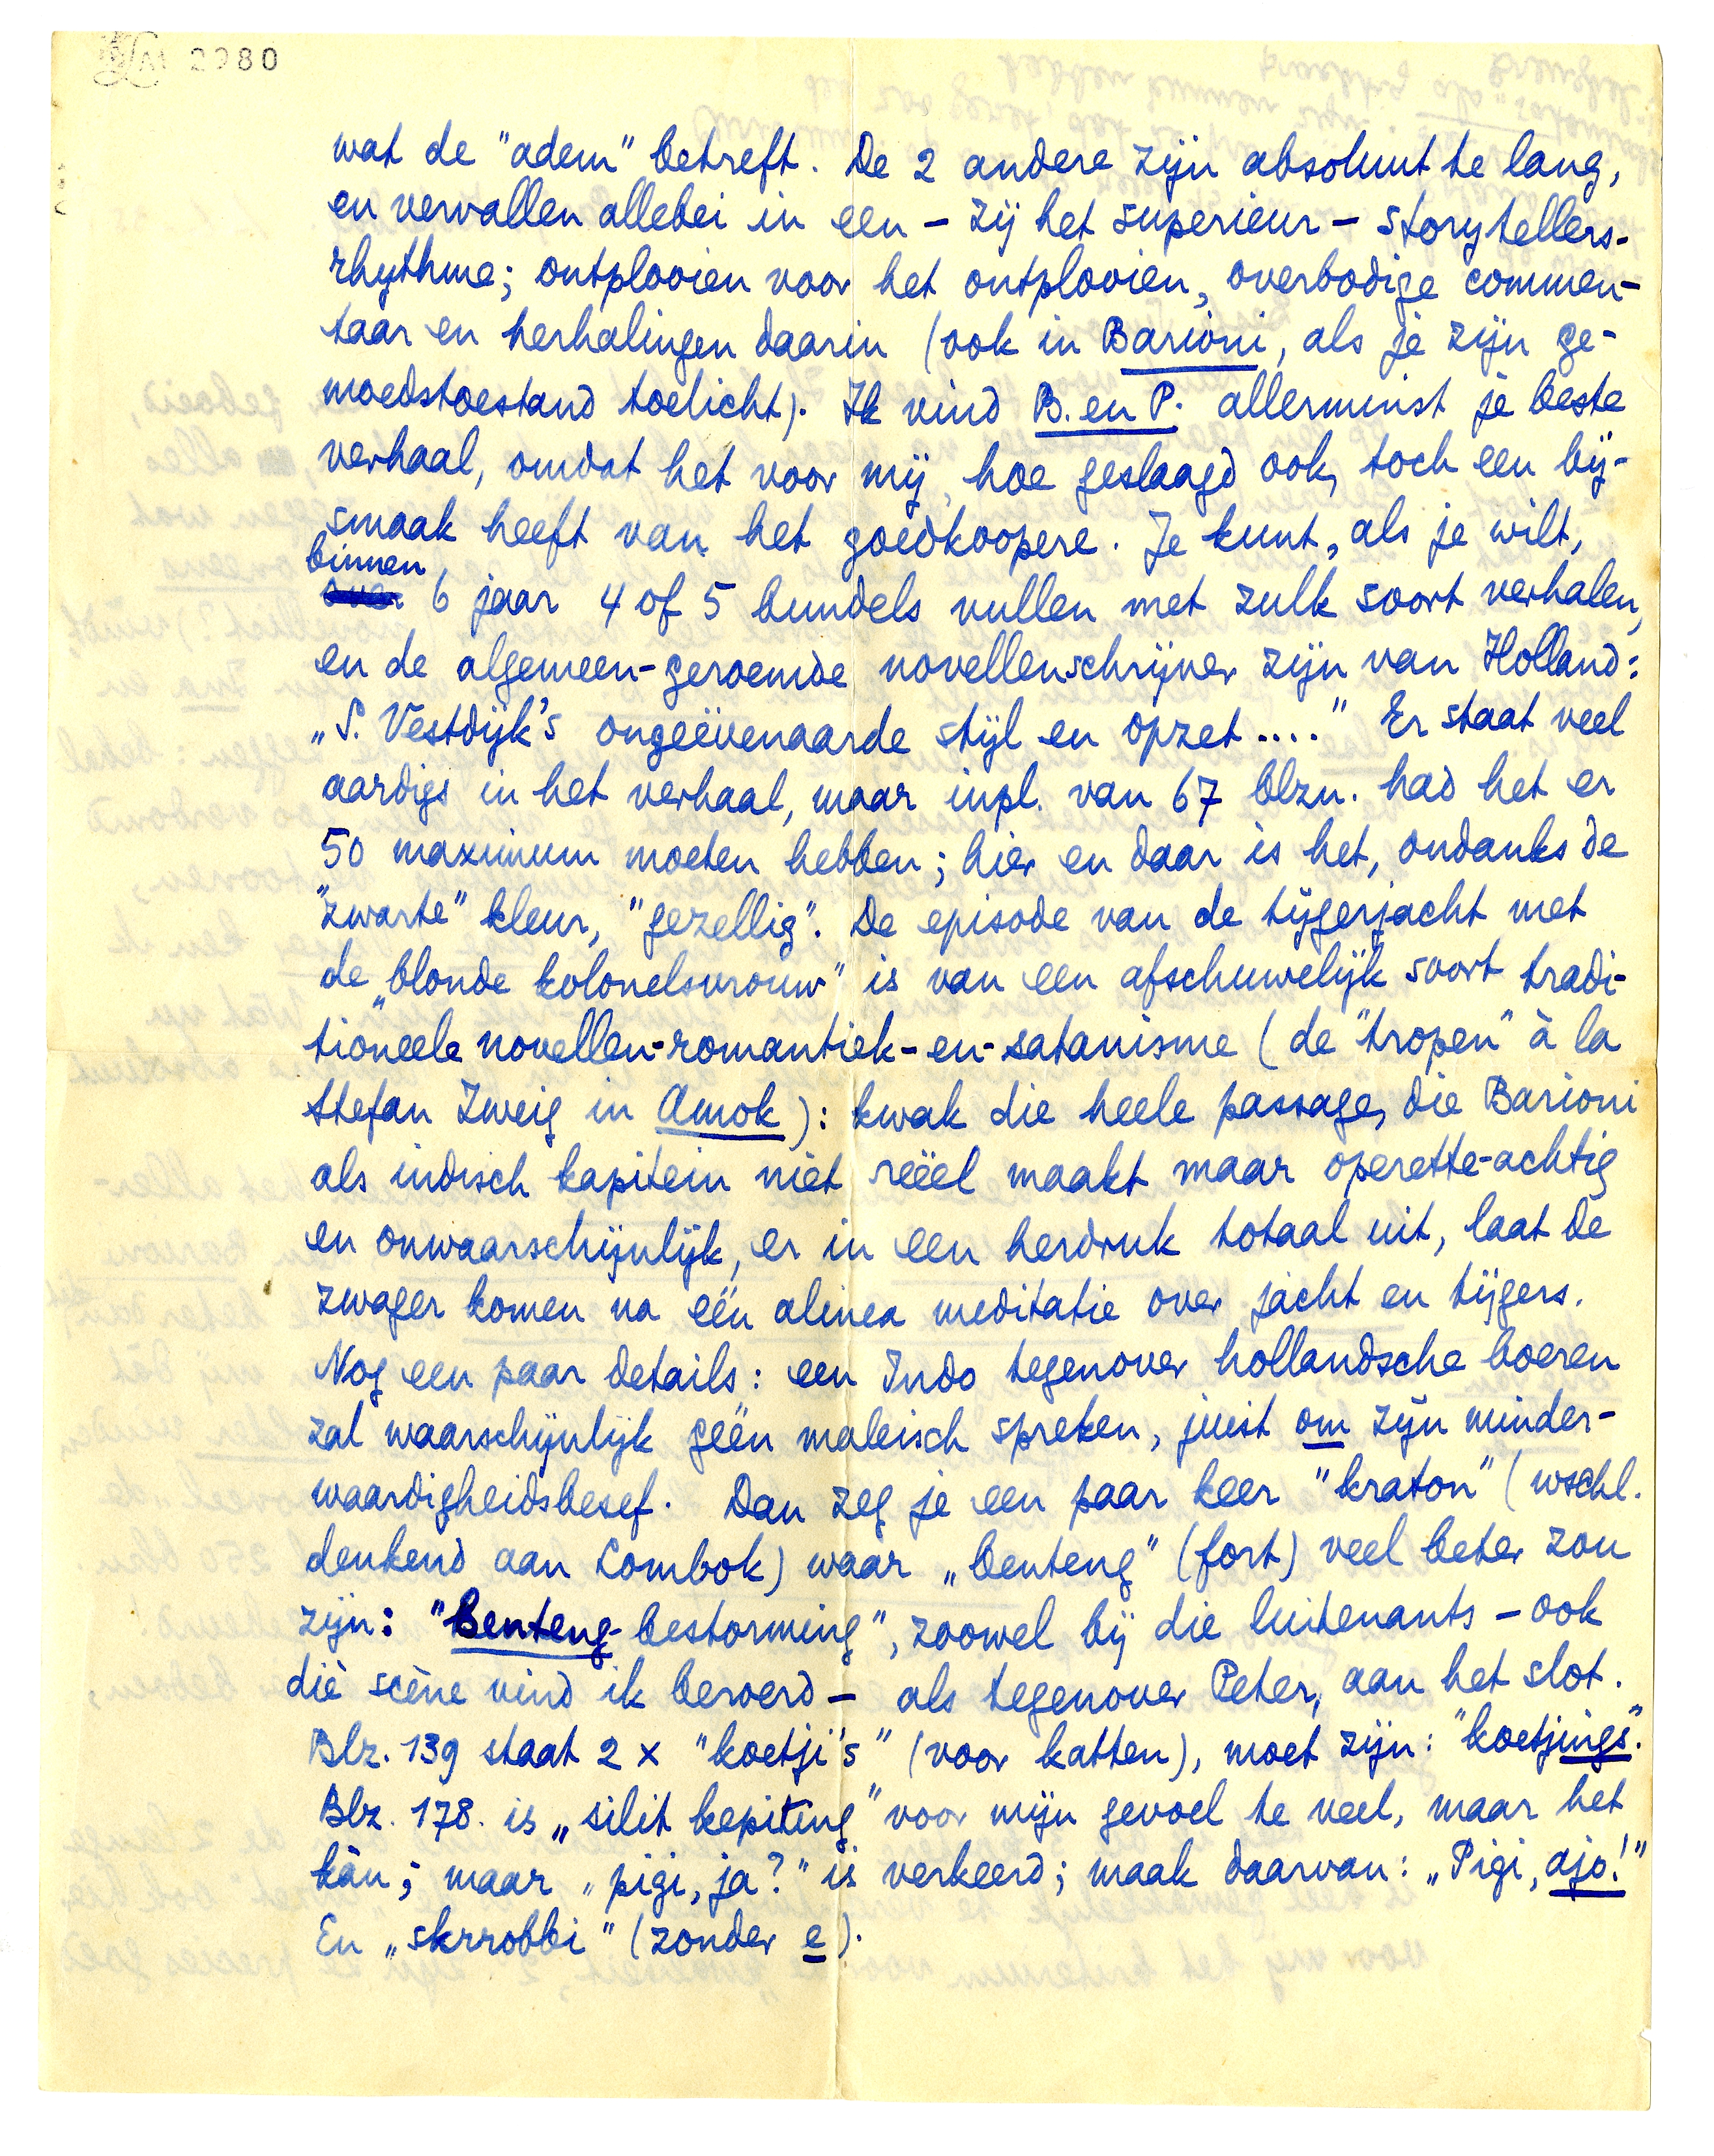 2980
wat de "adem" betreft. De 2 andere zijn absoluut te lang,
en vervallen allebei in een – zij het superieur – storytellers-
rhythme; ontplooien voor het ontplooien, overbodige commen-
taar en herhalingen daarin (ook in Barioni, als je zijn ge-
moedstoestand toelicht). Ik vind B. en P. allerminst je beste
verhaal, omdat het voor mij, hoe geslaagd ook, toch een bij-
smaak heeft van het goedkoopere. Je kunt, als je wilt,
binnen
over 6 jaar 4 of 5 bundels vullen met zulk soort verhalen,
en de algemeen-geroemde novellenschrijver zijn van Holland:
„S. Vestdijk's ongeëvenaarde stijl en opzet...." Er staat veel
aardigs in het verhaal, maar inpl. van 67 blzn. had het er
50 maximum moeten hebben; hier en daar is het, ondanks de
"zwarte" kleur, "gezellig". De episode van de tijgerjacht met
de „blonde kolonelsvrouw" is van een afschuwelijk soort tradi-
tioneele novellen-romantiek-en-satanisme (de "tropen" à la
Stefan Zweig in Amok): kwak die heele passage, die Barioni
als indisch kapitein niet reëel maakt maar operette-achtig
en onwaarschijnlijk, er in een herdruk totaal uit, laat de
zwager komen na één alinea meditatie over jacht en tijgers.
Nog een paar details: een Indo tegenover hollandsche boeren
zal waarschijnlijk géén maleisch spreken, juist om zijn minder-
waardigheidsbesef. Dan zeg je een paar keer "kraton" (wschl.
denkend aan Lombok) waar „benteng" (fort) veel beter zou
zijn: "Benteng-bestorming", zoowel bij die luitenants – ook
die scène vind ik beroerd – als tegenover Peter, aan het slot.
Blz. 139 staat 2 x "koetji's" (voor katten), moet zijn: "koetjings".
Blz. 178. is „silit kepiting" voor mijn gevoel te veel, maar het
kàn; maar „pigi, ja?" is verkeerd; maak daarvan: „Pigi, ajo!"
En „skrrobbi" (zonder e).